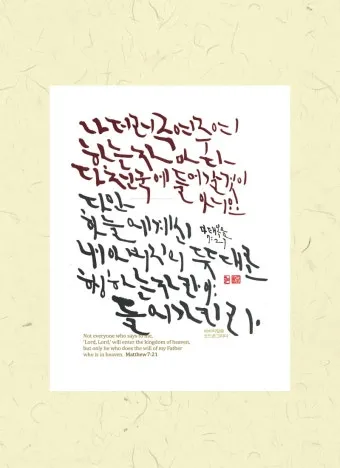 나더러 주여주여
하는자 마다
다 천국에 들어갈것이
아니요
다만
하늘에계신
마태복음
7:21
내아버지의 뜻대로
행하는자라야
들어가리라.
Not everyone who says to me,
'Lord, Lord,' will enter the kingdom of heaven,
but only he who does the will of my Father
who is in heaven. Matthew 7:21